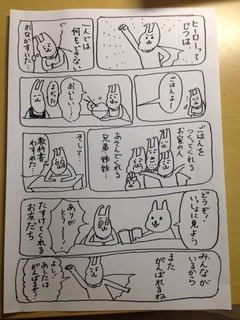 ヒーローって
じつは、
一人では
何も、できない
おなかすいた…
ごはんよー
おいしい…!
よかった
ごはんを
つくってくれる
お家の人
あそんでくれる
兄弟姉妹…
そして…
教科書
わすれた…
どうぞ!
いっしょに見よう
ありが
とう…!
たすけてくれる
お友だち
みんなが
いるから
また
がんばれるね
よし!
あしたも
がんばるぞ!